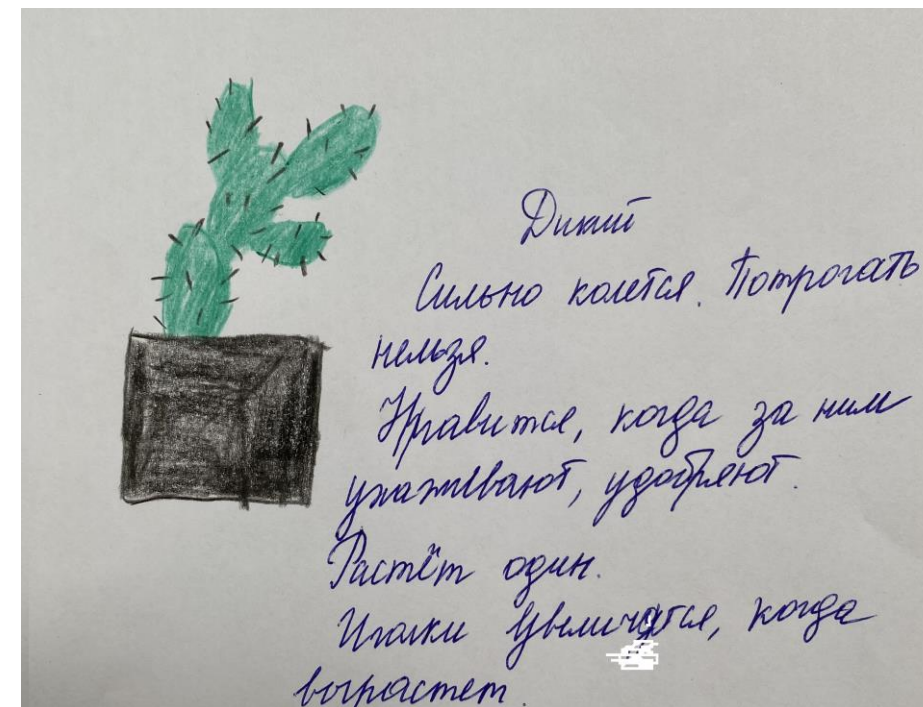 Дикий
Сильно колется. Потрогать
нельзя.
Нравится, когда за ним
ухаживают, удобряют.
Растёт один.
Иголки увеличатся, когда
вырастет.